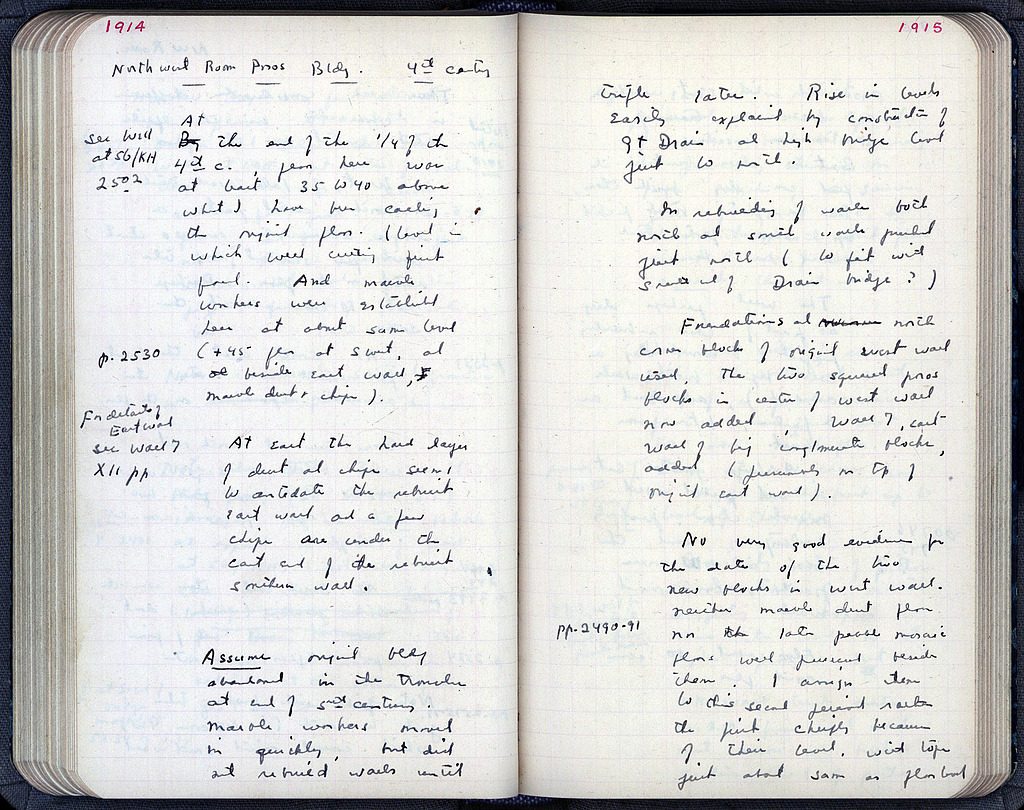 1914
Northwest Room Poros Bldg. 4th century
See Well
at 56/KH
2502
At
By the end of the 1/4 of the
4th c., floor here was
at least 35 to 40 above
what I have been calling
the original floor. (Level in
which well cutting first
found. And marble
workers were established
here at about same level
p. 2530
(+45 floor at S west, and
beside East wall,
marble dust & chips).
For details of
East wall
see Wall 7
XII pp
At East the hard layer
of dust and chips seems
to antedate the rebuilt
East wall and a few
chips are under the
East end of the rebuilt
southern wall.
Assume original bldg
abandoned in the troubles
at end of 5th century.
Marble workers moved
in quickly, but did
not rebuild walls until
1915
trifle later. Rise in levels
easily explained by construction of
Gt Drain and high bridge level
just to north.
In rebuilding of walls both
north and south walls pushed
just north (to fit with
South end of Drain bridge?)
Foundations and north
corner blocks of original west wall
used. The two squared poros
blocks in center of west wall
now added, Wall 7, east
wall of big conglomerate blocks,
added (previously on top of
original east wall).
No very good evidence for
the date of the two
new blocks in west wall.
Neither marble dust floor
pp. 2490-91
nor the later pebble mosaic
floors well preserved beside
them. I assign them
to this second period rather
the first chiefly because
of their level, with tops
just about same as floor level